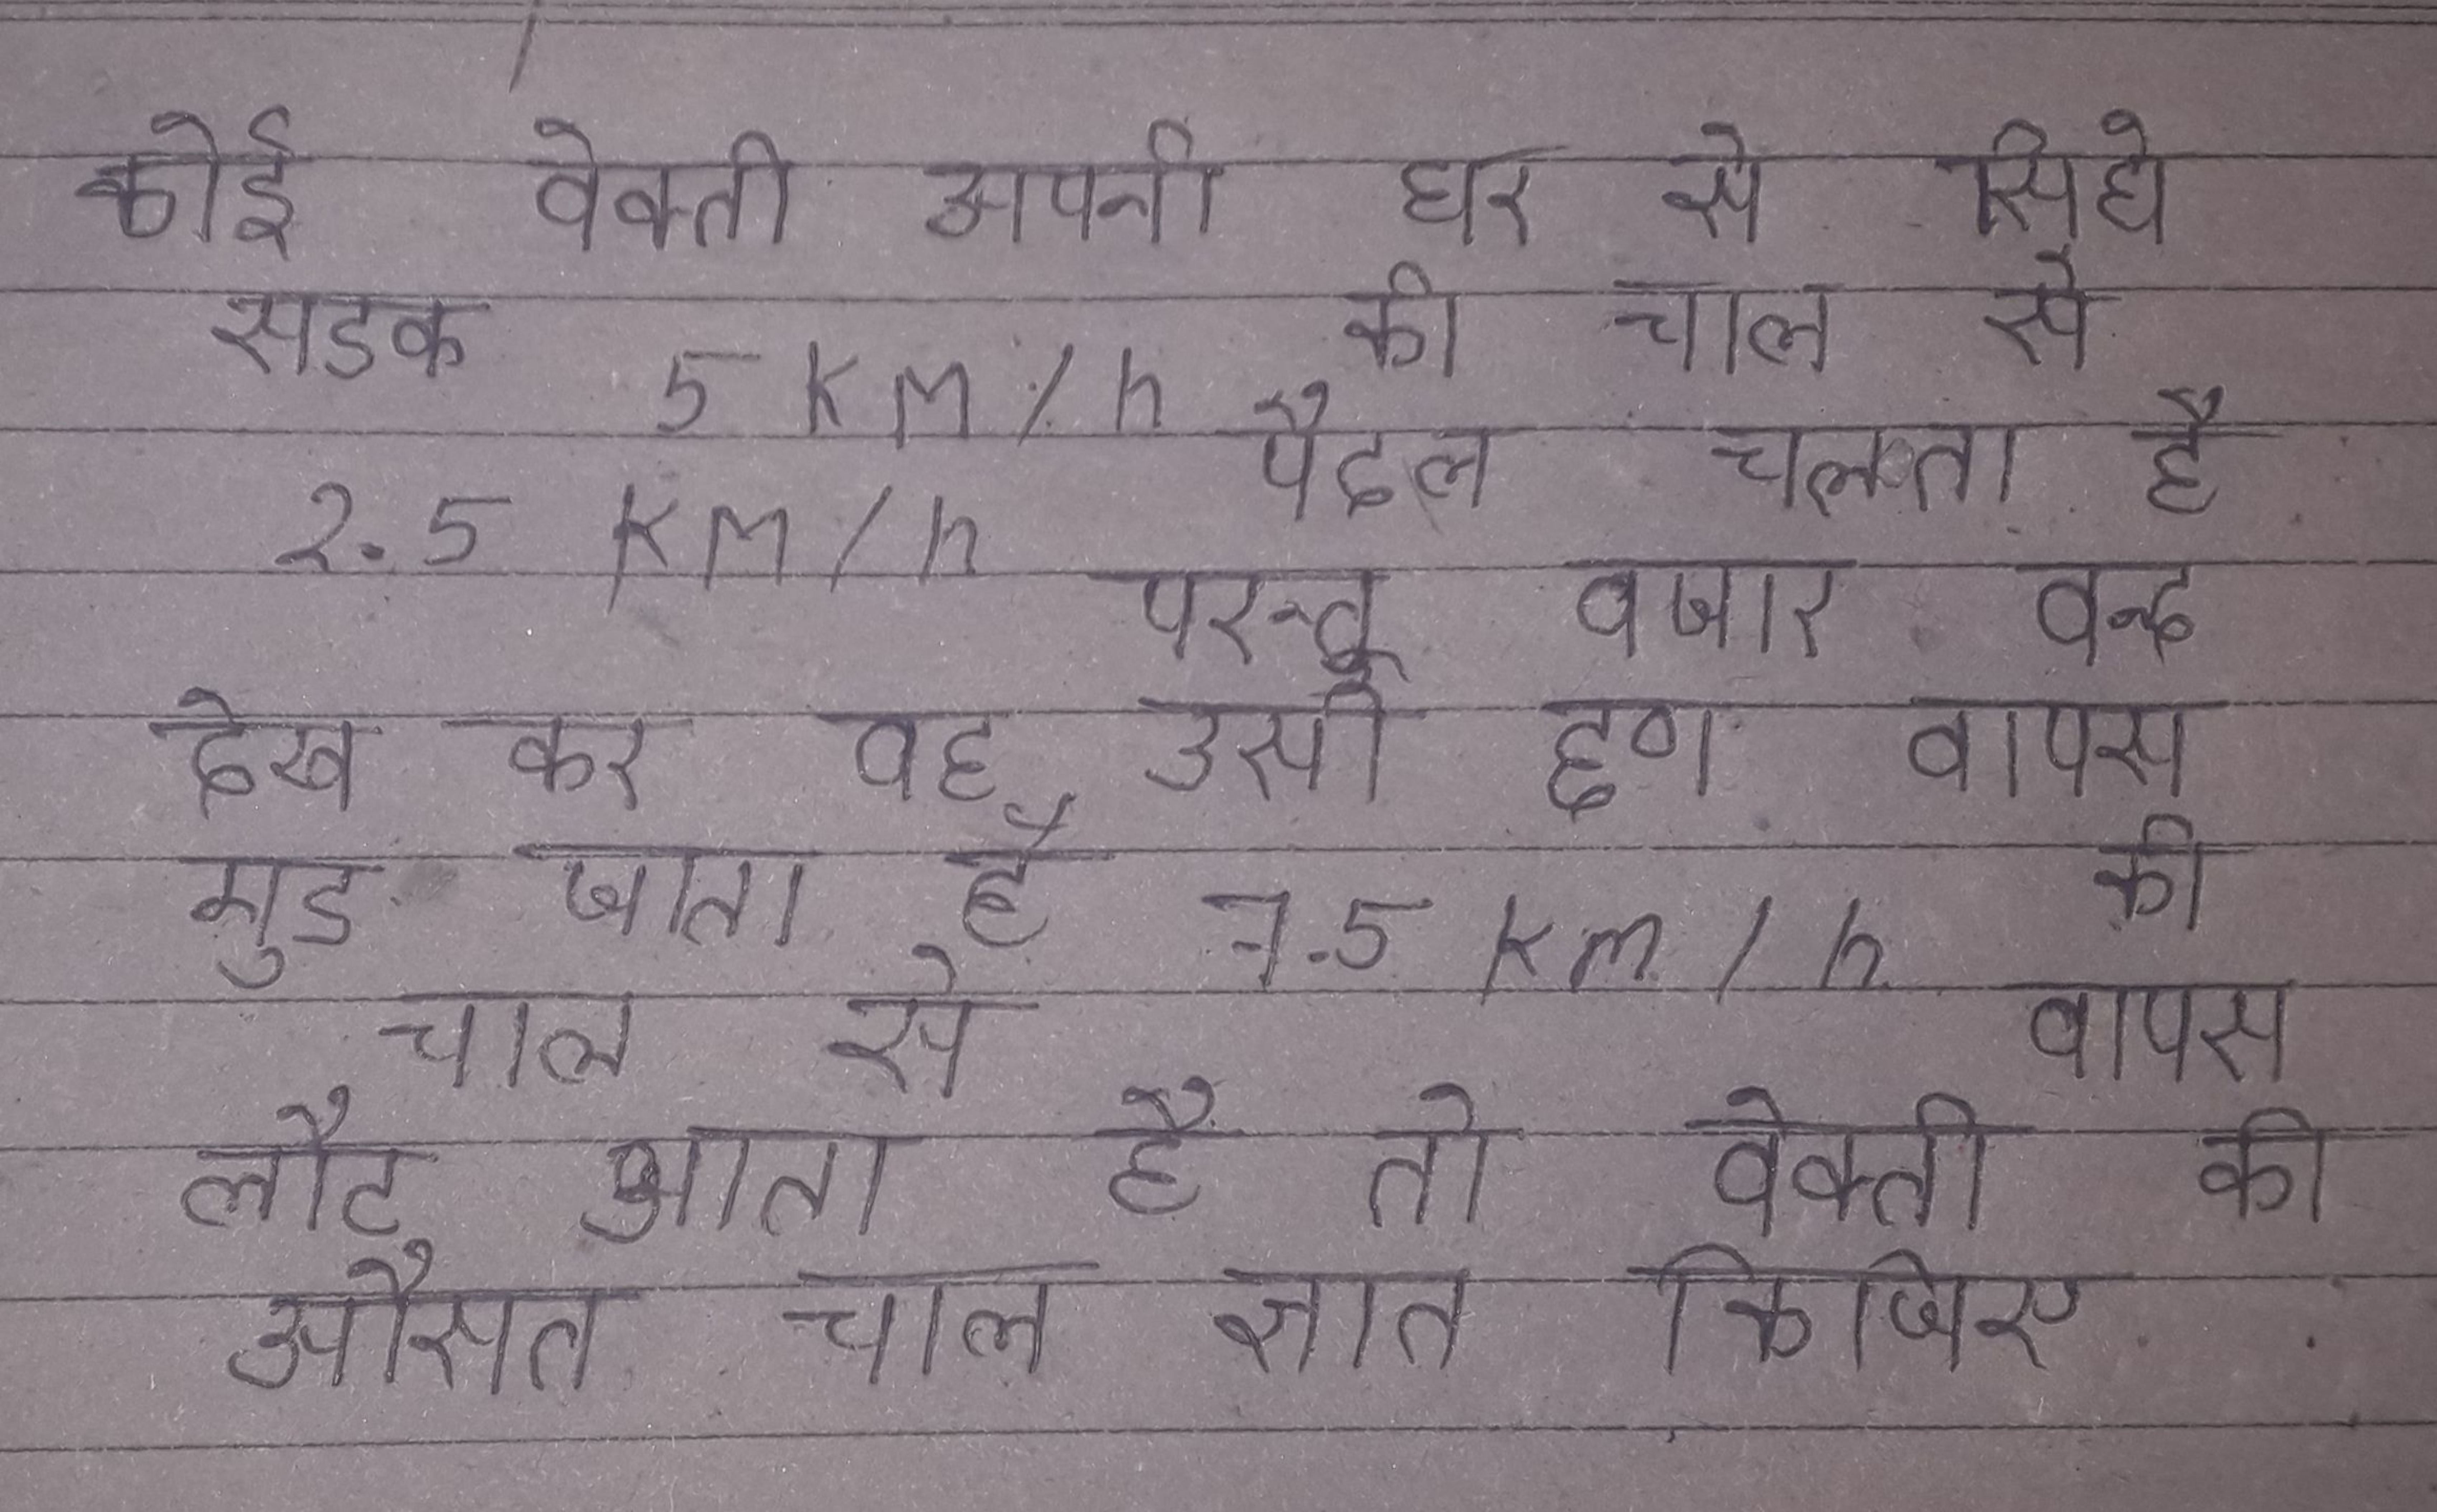 कोई वेक्ती अपनी घर से सिधे
सडक 5 KM/h की चाल से
2.5 KM/h पैदल चलता है
परन्तू वजार वन्द
देख कर वह उसी छण वापस
मुड जाता है 7.5 Km/h की
चाल से वापस
लौट आता है तो वेक्ती की
औसत चाल ज्ञात किजिए